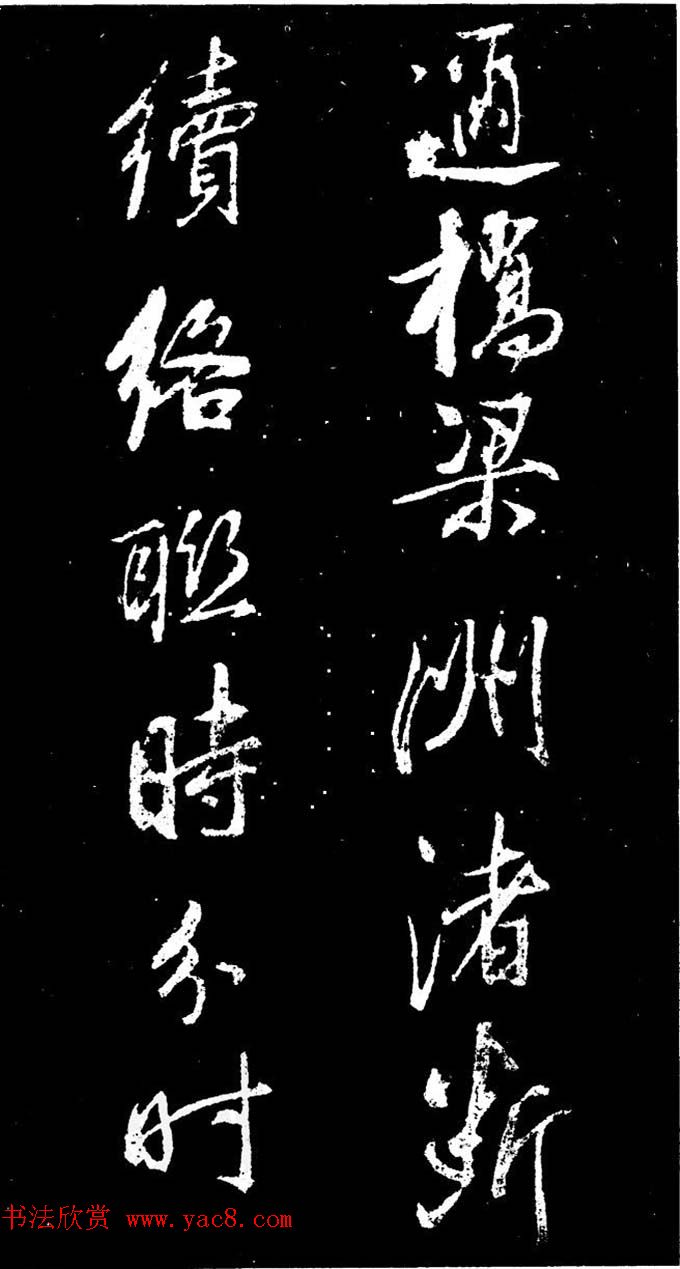 橋梁洲渚断
續絡聯時分时
书法欣赏 www.yac8.com